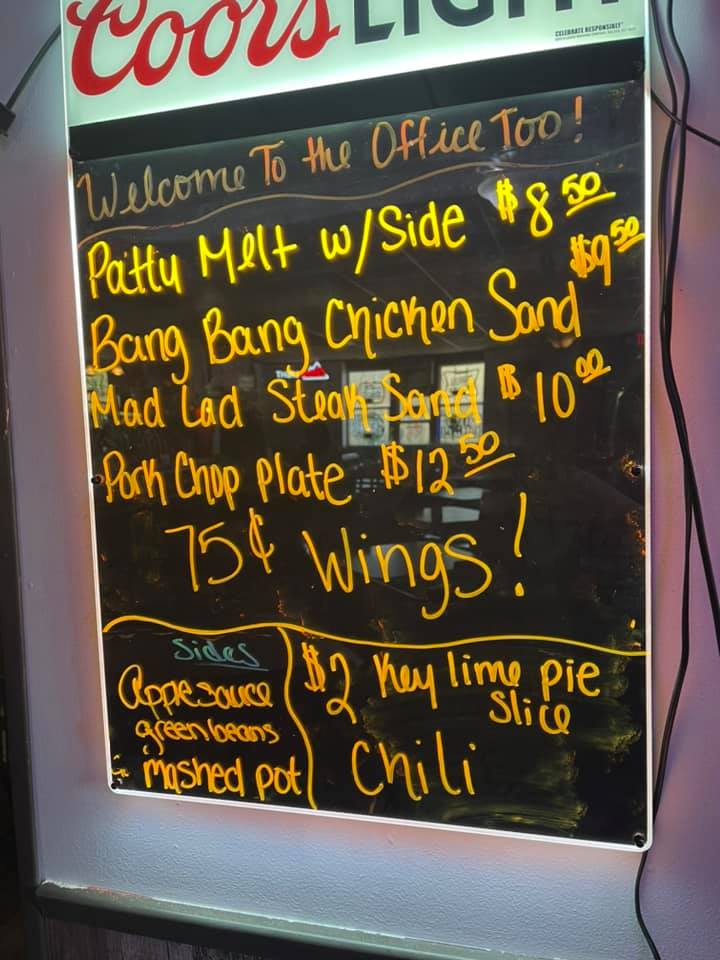 Coors LIGHT
CELEBRATE RESPONSIBLY
Welcome To the Office Too!
Patty Melt w/Side $8.50
Bang Bang Chicken Sand $9.50
Mad Lad Steak Sand $10.00
Pork Chop Plate $12.50
75¢ Wings!
Sides
Applesauce
green beans
mashed pot
$2 Key lime pie
Slice
Chili